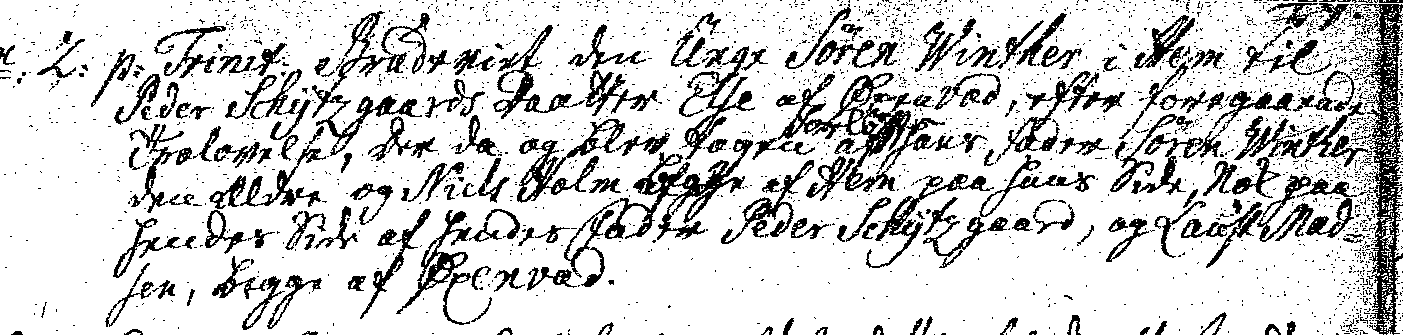 2. p. Trinit. Brudeviet den Unge Sören Winther i Hem til
Peder Schytzgaards Daatter Else af Øxenvad, efter foregaaende
Trolovelse, der da og blev tagen forløfte af hans Fader Sören Winther
den Ældre og Niels Holm begge af Hem paa hans Side, Nok paa
hendes Side af hendes Fader Peder Schytzgaard, og Laust Mad-
sen, begge af Øxenvad.